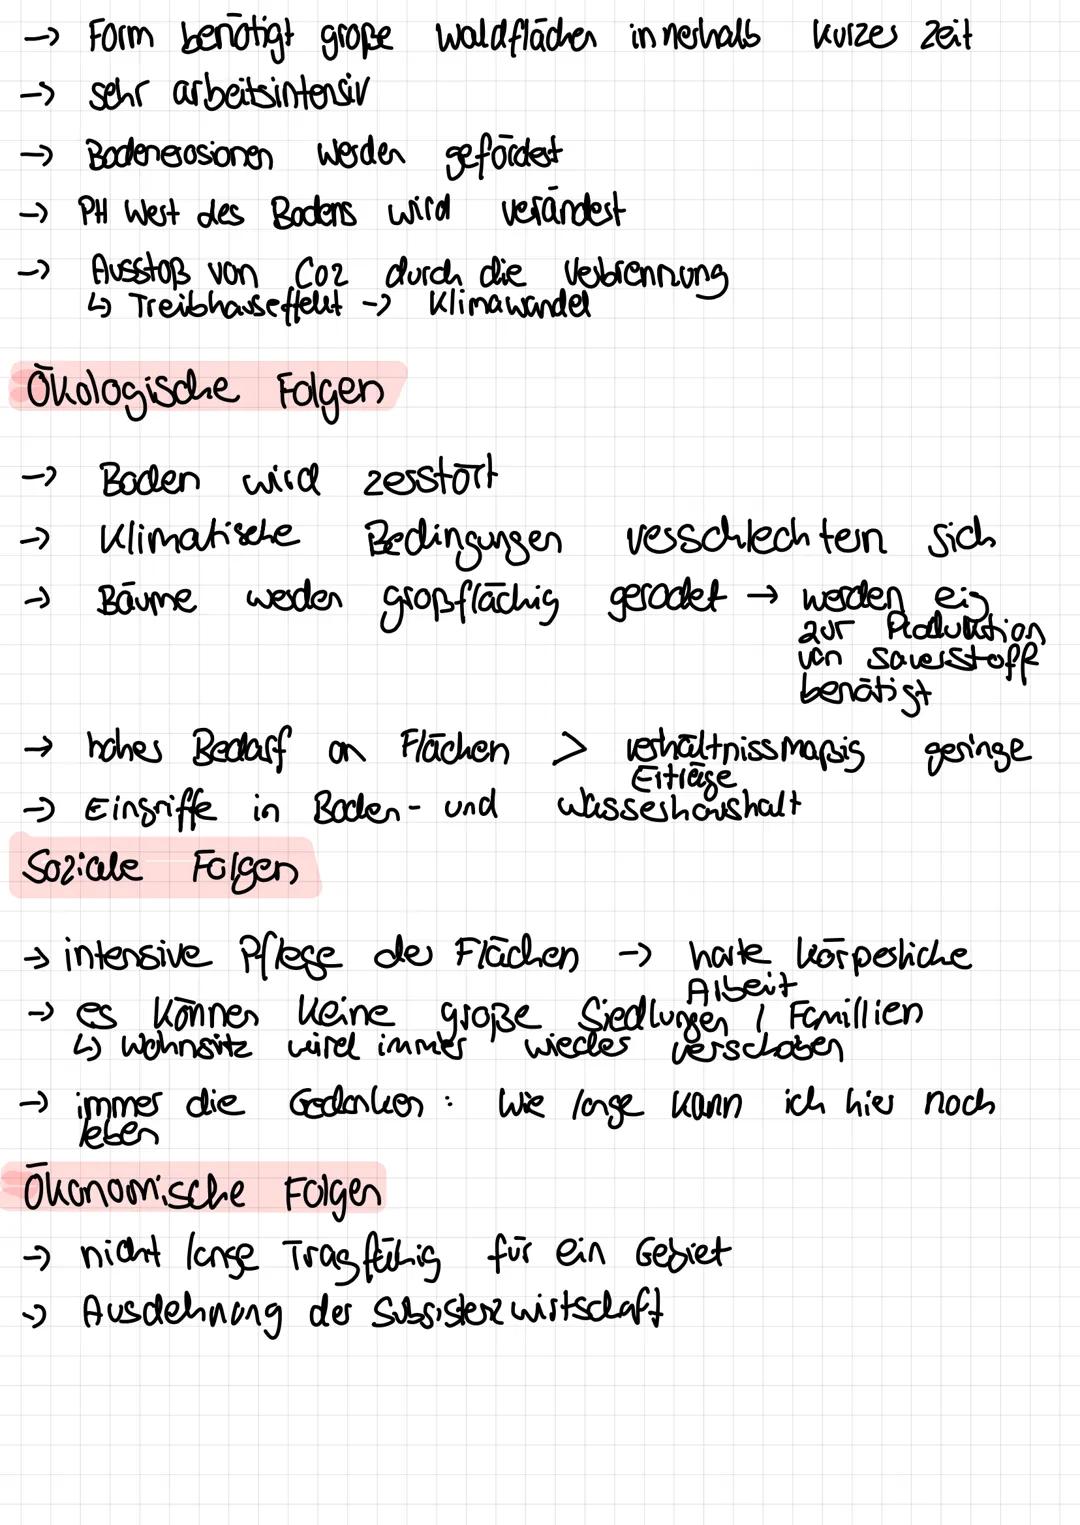 → Form benötigt große Waldflächen innerhalb kurzer Zeit
→ sehr arbeitsintensiv
→ Bodenerosionen werden gefördert
→ PH Wert des Bodens wird verändert
→ Ausstoß von CO2 durch die Verbrennung
↳ Treibhauseffekt → Klimawandel
Ökologische Folgen
→ Boden wird zerstört
→ Klimatische Bedingungen verschlechtern sich
→ Bäume werden großflächig gerodet → werden eig
zur Produktion
von Sauerstoff
benötigt
→ hohes Bedarf an Flächen > verhältnissmäßig geringe
Erträge
→ Eingriffe in Boden- und Wasserhaushalt
Soziale Folgen
→ intensive Pflege der Flächen → harte körperliche
Arbeit
→ es können keine große Siedlungen / Famillien
↳ Wohnsitz wird immer wieder verschoben
→ immer die Gedanken: Wie lange kann ich hier noch
leben
Ökonomische Folgen
→ nicht lange Tragfähig für ein Gebiet
→ Ausdehnung der Subsistenzwirtschaft